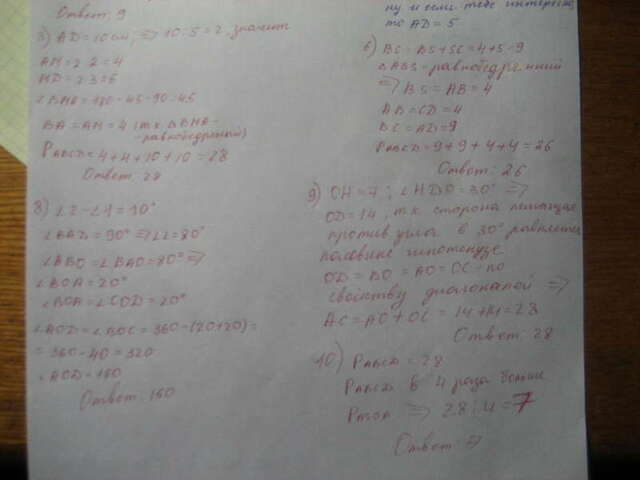 Ответ: 9
5) AD = 10 см, ⇒ 10:5 = 2, значит
AM = 2·2 = 4
MD = 2·3 = 6
∠BMA = 180 - 45 - 90 = 45
BA = AM = 4 (т.к. △BMA - равнобедренный)
PABCD = 4 + 4 + 10 + 10 = 28
Ответ: 28
8) ∠2 - ∠1 = 10°
∠BAD = 90° ⇒ ∠2 = 80°
∠ABO = ∠BAO = 80° ⇒
∠BOA = 20°
∠BOA = ∠COD = 20°
∠AOD = ∠BOC = 360 - (20+20) =
= 360 - 40 = 320
∠AOD = 160
Ответ: 160
ну и если тебе интересно,
то AD = 5
6) BC = BS + SC = 4 + 5 = 9
△ABS - равнобедренный
⇒ BS = AB = 4
AB = CD = 4
BC = AD = 9
PABCD = 9 + 9 + 4 + 4 = 26
Ответ: 26
9) OH = 7; ∠HDO = 30° ⇒
OD = 14, т.к. сторона лежащая
против угла в 30° равняется
половине гипотенузе
OD = BO = AO = OC - по
свойству диагоналей ⇒
AC = AO + OC = 14 + 14 = 28
Ответ: 28
10) PABCD = 28
PABCD в 4 раза больше
⇒ 28 : 4 = 7
Ответ: 7